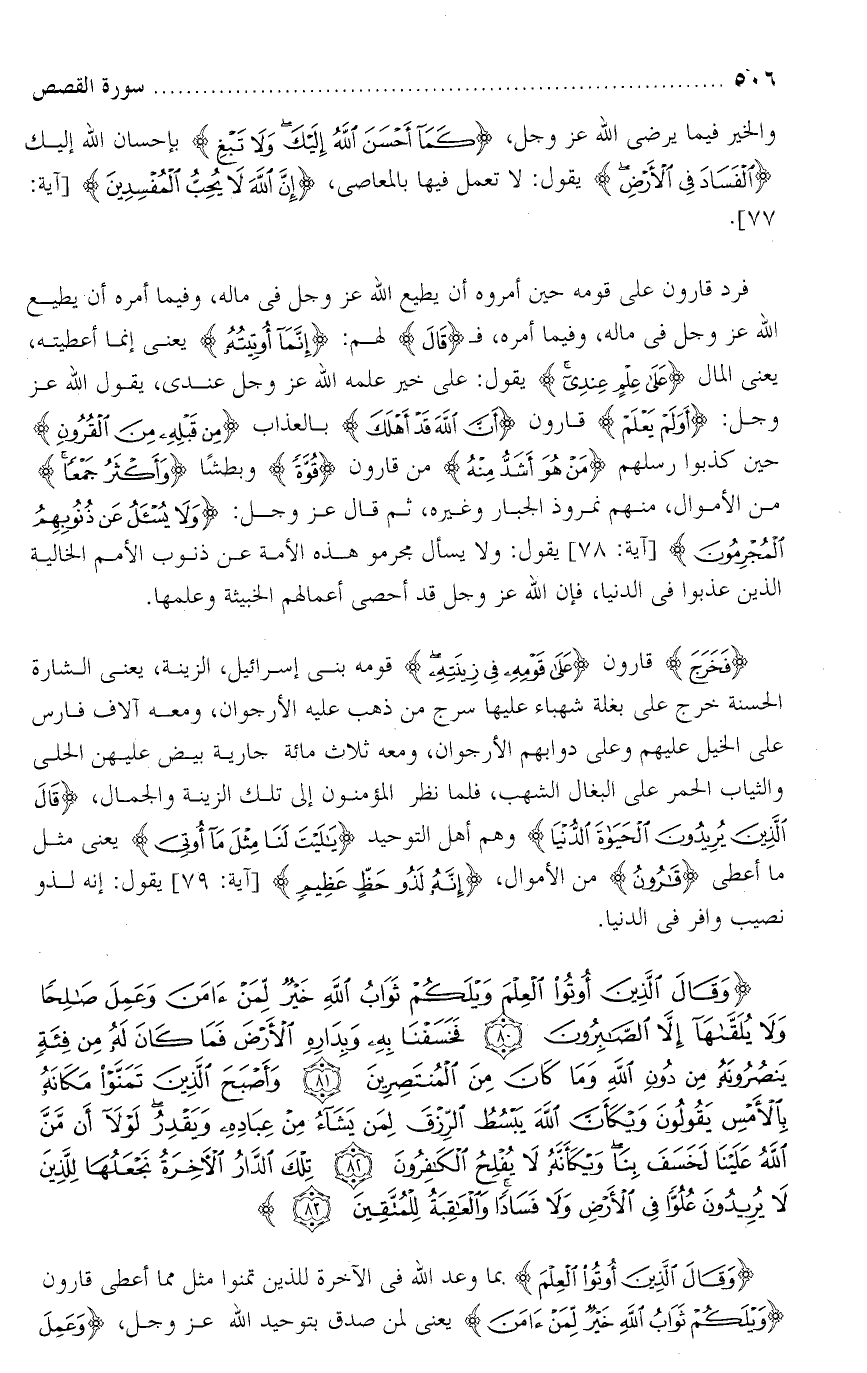 ٥٠٦ ........................................................................ سورة القصص
والخير فيما يرضى الله عز وجل، ﴿كَمَآ أَحْسَنَ ٱللَّهُ إِلَيْكَ ۖ وَلَا تَبْغِ﴾ بإحسان الله إليك
﴿ٱلْفَسَادَ فِى ٱلْأَرْضِ ۖ﴾ يقول: لا تعمل فيها بالمعاصى، ﴿إِنَّ ٱللَّهَ لَا يُحِبُّ ٱلْمُفْسِدِينَ﴾ [آية:
٧٧].
فرد قارون على قومه حين أمروه أن يطيع الله عز وجل فى ماله، وفيما أمره أن يطيع
الله عز وجل فى ماله، وفيما أمره، فـ﴿قَالَ﴾ لهم: ﴿إِنَّمَآ أُوتِيتُهُۥ﴾ يعنى إنما أعطيته،
يعنى المال ﴿عَلَىٰ عِلْمٍ عِندِىٓ ۚ﴾ يقول: على خير علمه الله عز وجل عندى، يقول الله عز
وجل: ﴿أَوَلَمْ يَعْلَمْ﴾ قارون ﴿أَنَّ ٱللَّهَ قَدْ أَهْلَكَ﴾ بالعذاب ﴿مِن قَبْلِهِۦ مِنَ ٱلْقُرُونِ﴾
حين كذبوا رسلهم ﴿مَنْ هُوَ أَشَدُّ مِنْهُ﴾ من قارون ﴿قُوَّةً﴾ وبطشًا ﴿وَأَكْثَرُ جَمْعًا ۚ﴾
من الأموال، منهم نمروذ الجبار وغيره، ثم قال عز وجل: ﴿وَلَا يُسْـَٔلُ عَن ذُنُوبِهِمُ
ٱلْمُجْرِمُونَ﴾ [آية: ٧٨] يقول: ولا يسأل مجرمو هذه الأمة عن ذنوب الأمم الخالية
الذين عذبوا فى الدنيا، فإن الله عز وجل قد أحصى أعمالهم الخبيثة وعلمها.
﴿فَخَرَجَ﴾ قارون ﴿عَلَىٰ قَوْمِهِۦ فِى زِينَتِهِۦ ۖ﴾ قومه بنى إسرائيل، الزينة، يعنى الشارة
الحسنة خرج على بغلة شهباء عليها سرج من ذهب عليه الأرجوان، ومعه آلاف فارس
على الخيل عليهم وعلى دوابهم الأرجوان، ومعه ثلاث مائة جارية بيض عليهن الحلى
والثياب الحمر على البغال الشهب، فلما نظر المؤمنون إلى تلك الزينة والجمال، ﴿قَالَ
ٱلَّذِينَ يُرِيدُونَ ٱلْحَيَوٰةَ ٱلدُّنْيَا﴾ وهم أهل التوحيد ﴿يَٰلَيْتَ لَنَا مِثْلَ مَآ أُوتِىَ﴾ يعنى مثل
ما أعطى ﴿قَٰرُونُ﴾ من الأموال، ﴿إِنَّهُۥ لَذُو حَظٍّ عَظِيمٍ﴾ [آية: ٧٩] يقول: إنه لذو
نصيب وافر فى الدنيا.
﴿وَقَالَ ٱلَّذِينَ أُوتُوا۟ ٱلْعِلْمَ وَيْلَكُمْ ثَوَابُ ٱللَّهِ خَيْرٌ لِّمَنْ ءَامَنَ وَعَمِلَ صَٰلِحًا
وَلَا يُلَقَّىٰهَآ إِلَّا ٱلصَّٰبِرُونَ ٨٠ فَخَسَفْنَا بِهِۦ وَبِدَارِهِ ٱلْأَرْضَ فَمَا كَانَ لَهُۥ مِن فِئَةٍ
يَنصُرُونَهُۥ مِن دُونِ ٱللَّهِ وَمَا كَانَ مِنَ ٱلْمُنتَصِرِينَ ٨١ وَأَصْبَحَ ٱلَّذِينَ تَمَنَّوْا۟ مَكَانَهُۥ
بِٱلْأَمْسِ يَقُولُونَ وَيْكَأَنَّ ٱللَّهَ يَبْسُطُ ٱلرِّزْقَ لِمَن يَشَآءُ مِنْ عِبَادِهِۦ وَيَقْدِرُ ۖ لَوْلَآ أَن مَّنَّ
ٱللَّهُ عَلَيْنَا لَخَسَفَ بِنَا ۖ وَيْكَأَنَّهُۥ لَا يُفْلِحُ ٱلْكَٰفِرُونَ ٨٢ تِلْكَ ٱلدَّارُ ٱلْأٓخِرَةُ نَجْعَلُهَا لِلَّذِينَ
لَا يُرِيدُونَ عُلُوًّا فِى ٱلْأَرْضِ وَلَا فَسَادًا ۚ وَٱلْعَٰقِبَةُ لِلْمُتَّقِينَ ٨٣﴾
﴿وَقَالَ ٱلَّذِينَ أُوتُوا۟ ٱلْعِلْمَ﴾ بما وعد الله فى الآخرة للذين تمنوا مثل مما أعطى قارون
﴿وَيْلَكُمْ ثَوَابُ ٱللَّهِ خَيْرٌ لِّمَنْ ءَامَنَ﴾ يعنى لمن صدق بتوحيد الله عز وجل، ﴿وَعَمِلَ